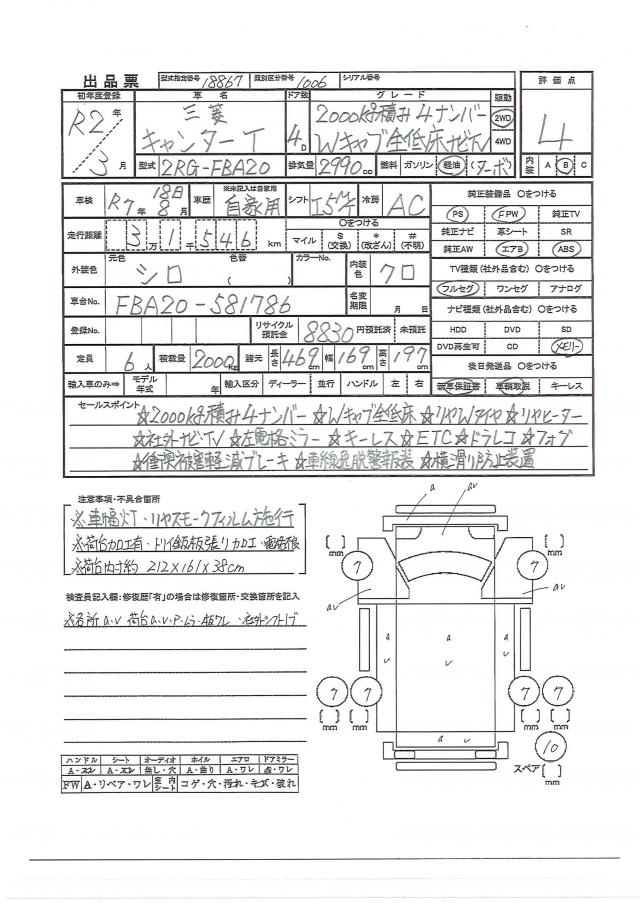 出品票 型式指定番号 18867 類別区分番号 1006 シリアル番号
初年度登録 車名 ドア数 グレード 駆動 評価点
R2年 三菱 2000kg積み4ナンバー 2WD 4
3月 キャンターT 4D Wキャブ全低床ナビTV 4WD
型式 2RG-FBA20 排気量 2990cc 燃料 ガソリン 軽油 ターボ 内装 A B C
車検 R7年 8月 18日 車歴 ※未記入は自家用 自家用 シフト I5M/T 冷房 AC 純正装備品 〇をつける
PS PW 純正TV
走行距離 3万1千546km 〇をつける マイル $(交換) *(改ざん) #(不明) 純正ナビ 革シート SR
純正AW エアB ABS
外装色 元色 シロ 色替 ( ) カラーNo. 内装色 クロ TV種類(社外品含む) 〇をつける
フルセグ ワンセグ アナログ
車台No. FBA20-581786 名変期限 月 日 ナビ種類(社外品含む) 〇をつける
登録No. リサイクル預託金 8830円預託済 未預託 HDD DVD SD
DVD再生可 CD メモリー
定員 6人 積載量 2000kg 諸元 長さ 469cm 幅 169cm 高さ 197cm 後日発送品 〇をつける
輸入車のみ⇒ モデル年式 年 輸入区分 ディーラー 並行 ハンドル 左 右 新車保証書 車輌取説 キーレス
セールスポイント ☆2000kg積み4ナンバー ☆Wキャブ全低床 ☆リヤWタイヤ ☆リヤヒーター
☆社外ナビTV ☆左電格ミラー ☆キーレス ☆ETC ☆ドラレコ ☆フォグ
☆衝突被害軽減ブレーキ ☆車線逸脱警報装 ☆横滑り防止装置
注意事項・不具合箇所
※車幅灯・リヤスモークフィルム施行
※荷台加工有・ドライ鈑板張り加工・電格不良
※荷台内寸約 212×161×38cm
検査員記入欄:修復歴「有」の場合は修復箇所・交換箇所を記入
※各所a.v 荷台a.v.P.ムラ・板ワレ・社外シフトノブ
a av
7 mm 7 mm
av av
a v a v a v
7 7 7 7
mm mm
a v
スペア 10 mm
ハンドル シート オーディオ ホイル エアロ ドアミラー
A・スレ A・スレ 無し・穴 A・曲り A・ワレ A・ワレ
FW A・リペア・ワレ 室内シート コゲ・穴・汚れ・キズ・破れ